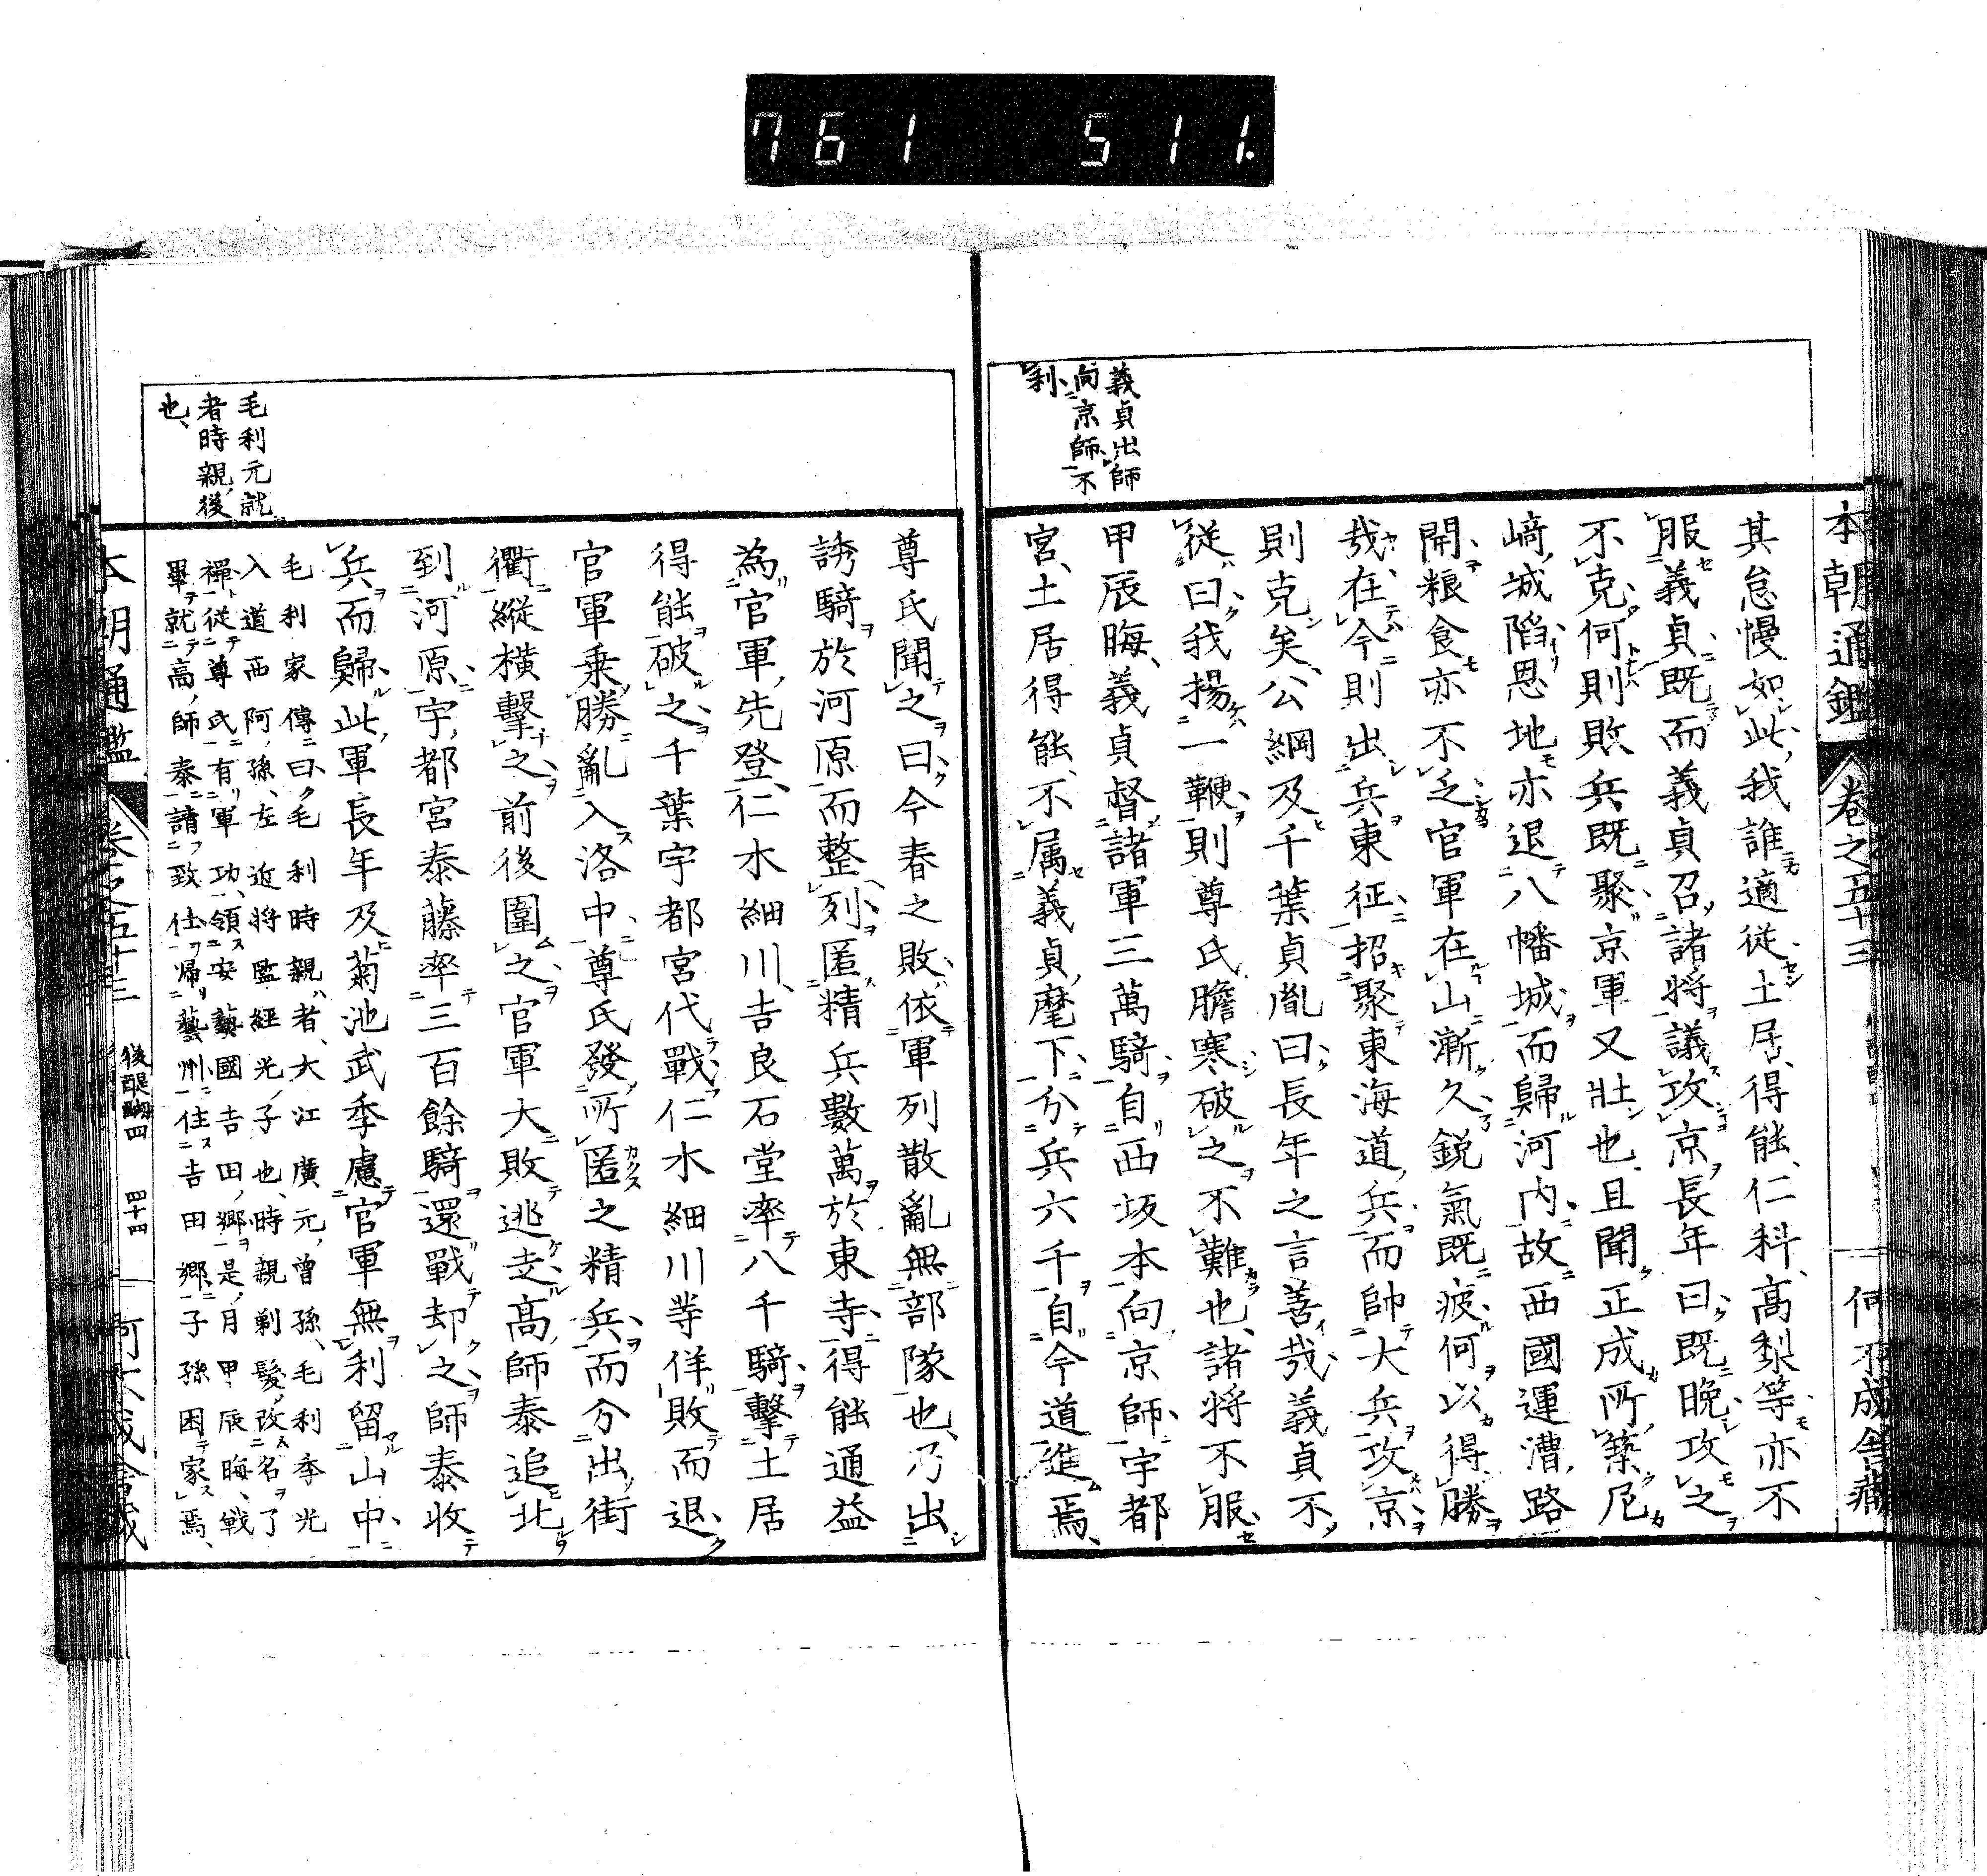 761 511.
本朝通鑑 卷之五十三 何不成舍藏
義貞出師
向京師不
利
其怠慢如此我誰適從土居得能仁科高梨等亦不
服義貞既而義貞召諸将議攻京長年曰既晚攻之
不克何則敗兵既聚京軍又壯也且聞正成所築尼
﨑城陷恩地亦退八幡城而歸河内故西國運漕路
開粮食亦不乏官軍在山漸久鋭氣既疲何以得勝
哉在今則出兵東征招聚東海道兵而帥大兵攻京
則克矣公綱及千葉貞胤曰長年之言善哉義貞不
從曰我揚一鞭則尊氏膽寒破之不難也諸将不服
甲辰晦義貞督諸軍三萬騎自西坂本向京師宇都
宮土居得能不属義貞麾下分兵六千自今道進焉
尊氏聞之曰今春之敗依軍列散亂無部隊也乃出
誘騎於河原而整列匿精兵數萬於東寺得能通益
為官軍先登仁木細川吉良石堂率八千騎擊土居
得能破之千葉宇都宮代戰仁木細川等佯敗而退
官軍乗勝亂入洛中尊氏發所匿之精兵而分出街
衢縱横擊之前後圍之官軍大敗逃走高師泰追北
到河原宇都宮泰藤率三百餘騎還戰却之師泰收
兵而歸此軍長年及菊池武季慮官軍無利留山中
毛利元就
者時親後
也
毛利家傳曰毛利時親者大江廣元曾孫毛利季光
入道西阿孫左近将監経光子也時親剃髮改名了
禪從尊氏有軍功領安藝國吉田郷是月甲辰晦戦
畢就高師泰請致仕帰藝州住吉田郷子孫因家焉
本朝通鑑 卷之五十三 後醍醐四 四十四 何不成舍藏